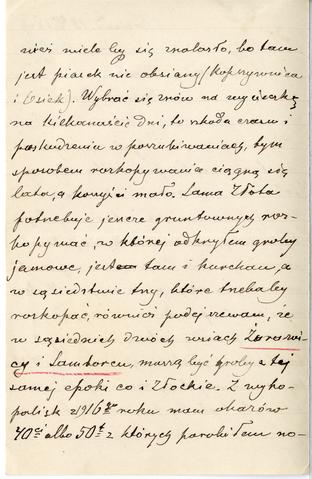 nież wiele by się znalazło, bo tam
jest piasek nie obsiany (Koprzywnica
i Osiek). Wybrać się znów na wycieczkę
na kilkanaście dni, to szkoda czasu i
pośkudzenia w poszukiwaniach, tym
sposobem rozkopywania ciągną się
lata, a korzyści mało. Sama Złota
potrzebuje jeszcze gruntownych roz-
kopywań, w której odkryłem groby
jamowe, jest tam i kurchan, a
w sąsiedstwie trzy, które trzebaby
rozkopać, również podejrzewam, że
w sąsiednich dwóch wsiach Żurawi-
cy i Samborcu, muszą być groby z tej
samej epoki co i Złockie. Z wyko-
palisk z 1916go roku mam okazów
40ci albo 50t z których porobiłem no-